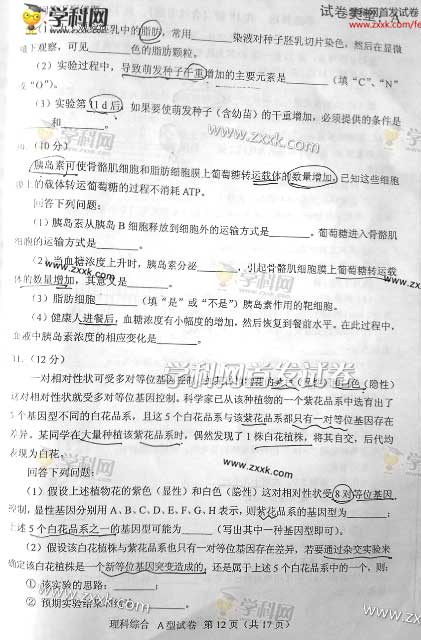 试卷类型：A
学科网首发试卷
www.zxxk.com/fe
胚乳中的脂肪，常用______染液对种子胚乳切片染色，然后在显微
镜下观察，可见______色的脂肪颗粒。
(2) 实验过程中，导致萌发种子干重增加的主要元素是______（填“C”、“N”
或“O”）。
(3) 实验第11 d后，如果要使萌发种子（含幼苗）的干重增加，必须提供的条件是
______和______。
(10分)
胰岛素可使骨骼肌细胞和脂肪细胞膜上葡萄糖转运载体的数量增加，已知这些细胞
上的载体转运葡萄糖的过程不消耗ATP。
回答下列问题：
(1) 胰岛素从胰岛B细胞释放到细胞外的运输方式是______，葡萄糖进入骨骼肌
细胞的运输方式是______。
(2) 当血糖浓度上升时，胰岛素分泌______，引起骨骼肌细胞膜上葡萄糖转运载
体的数量增加，其意义是______。
(3) 脂肪细胞______（填“是”或“不是”）胰岛素作用的靶细胞。
(4) 健康人进餐后，血糖浓度有小幅度的增加，然后恢复到餐前水平。在此过程中，
血液中胰岛素浓度的相应变化是______。
(12分)
一对相对性状可受多对等位基因控制，
（显性）和白色（隐性）
这对相对性状就受多对等位基因控制。科学家已从该种植物的一个紫花品系中选育出了
5个基因型不同的白花品系，且这5个白花品系与该紫花品系都只有一对等位基因存在
差异。某同学在大量种植该紫花品系时，偶然发现了1株白花植株，将其自交，后代均
表现为白花。
回答下列问题：
(1) 假设上述植物花的紫色（显性）和白色（隐性）这对相对性状受8对等位基因
控制，显性基因分别用A、B、C、D、E、F、G、H表示，则紫花品系的基因型为______；
上述5个白花品系之一的基因型可能为______（写出其中一种基因型即可）。
(2) 假设该白花植株与紫花品系也只有一对等位基因存在差异，若要通过杂交实验来
确定该白花植株是一个新等位基因突变造成的，还是属于上述5个白花品系中的一个，则：
① 该实验的思路：______
② 预期实验结果
理科综合 A型试卷 第12页（共17页）
学科网
www.zxxk.com
学科网首发试卷
www.zxxk.com